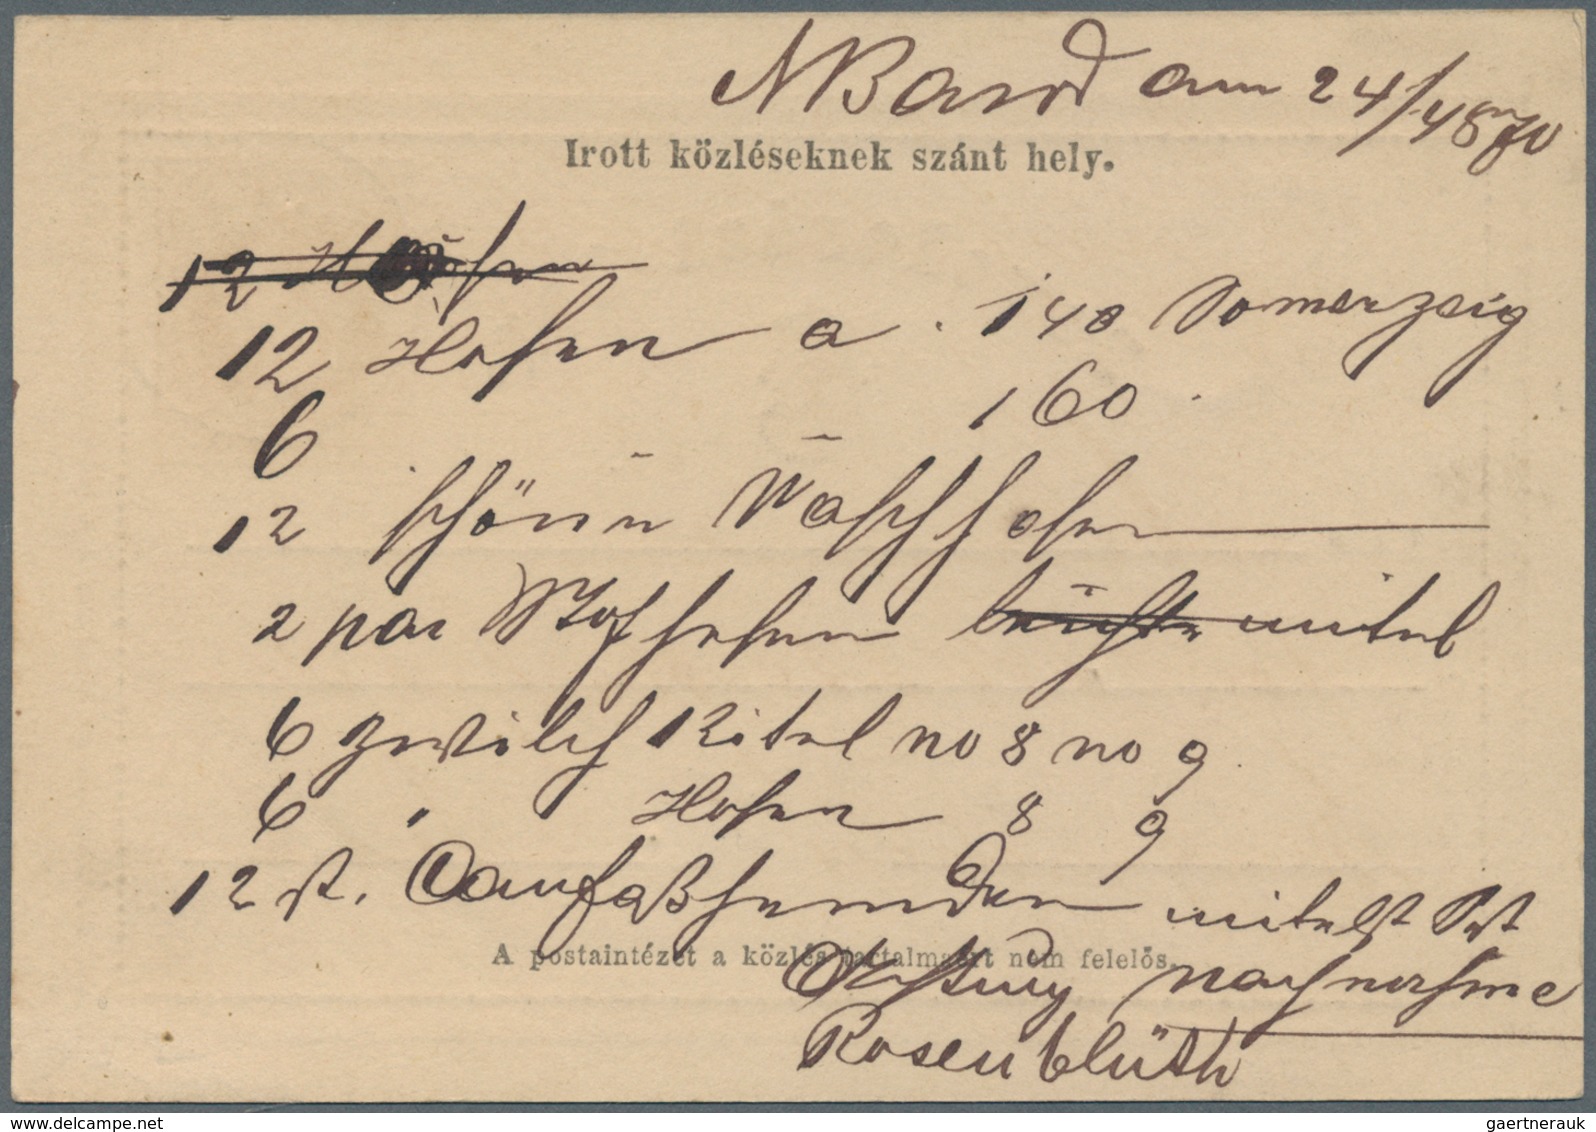 NBand am 24/4 870
Irott közléseknek szánt hely.
12 Hosen
12 Hosen a . 140 Somerzeig
6 160
12 schöne Waschhosen
2 par Stofhosen leichte mitel
6 zwilch Kitel no 8 no 9
6 " Hosen 8 9
12 st. mitelst Post
A postaintézet a közlés tartalmaért nem felelős.
nachnahme
Rosenblüth
www.delcampe.net
gaertnerauk